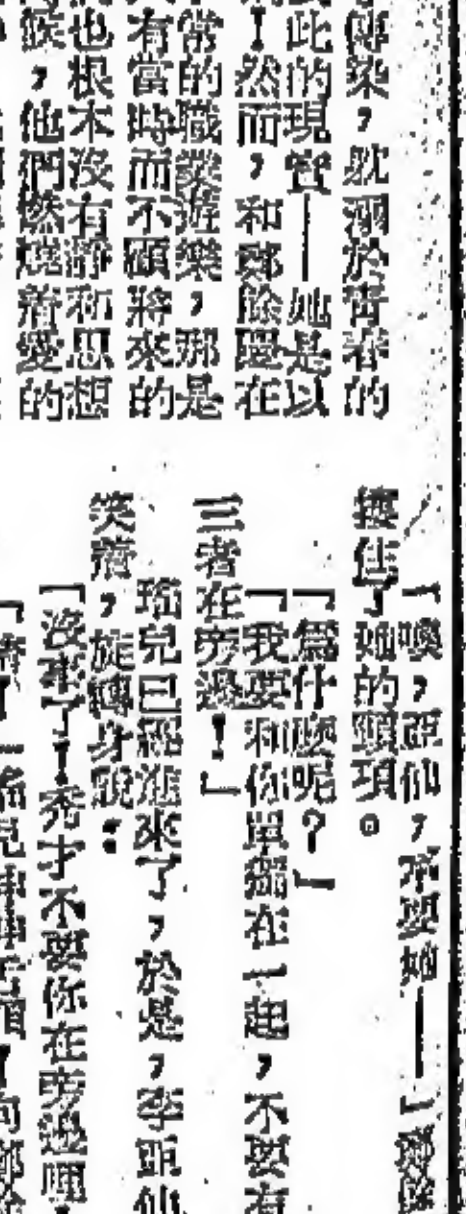 傳染,躭溺於青春的
此的現實——她是以
!然而,和鄭除隱在
常的職業遊樂,那是
有當時而不顧將來的
也根本沒有靜和思想
候,他們燃燒着愛的
「噢,亞仙,不要她——」鄭
摟住了她的頸項。
「爲什麼呢?」
「我要和你單獨在一起,不要有
三者在旁邊!」
瑤兒已經進來了,於是,李亞仙
笑着,旋轉身說:
「沒事了!秀才不要你在旁邊哩
瑤兒